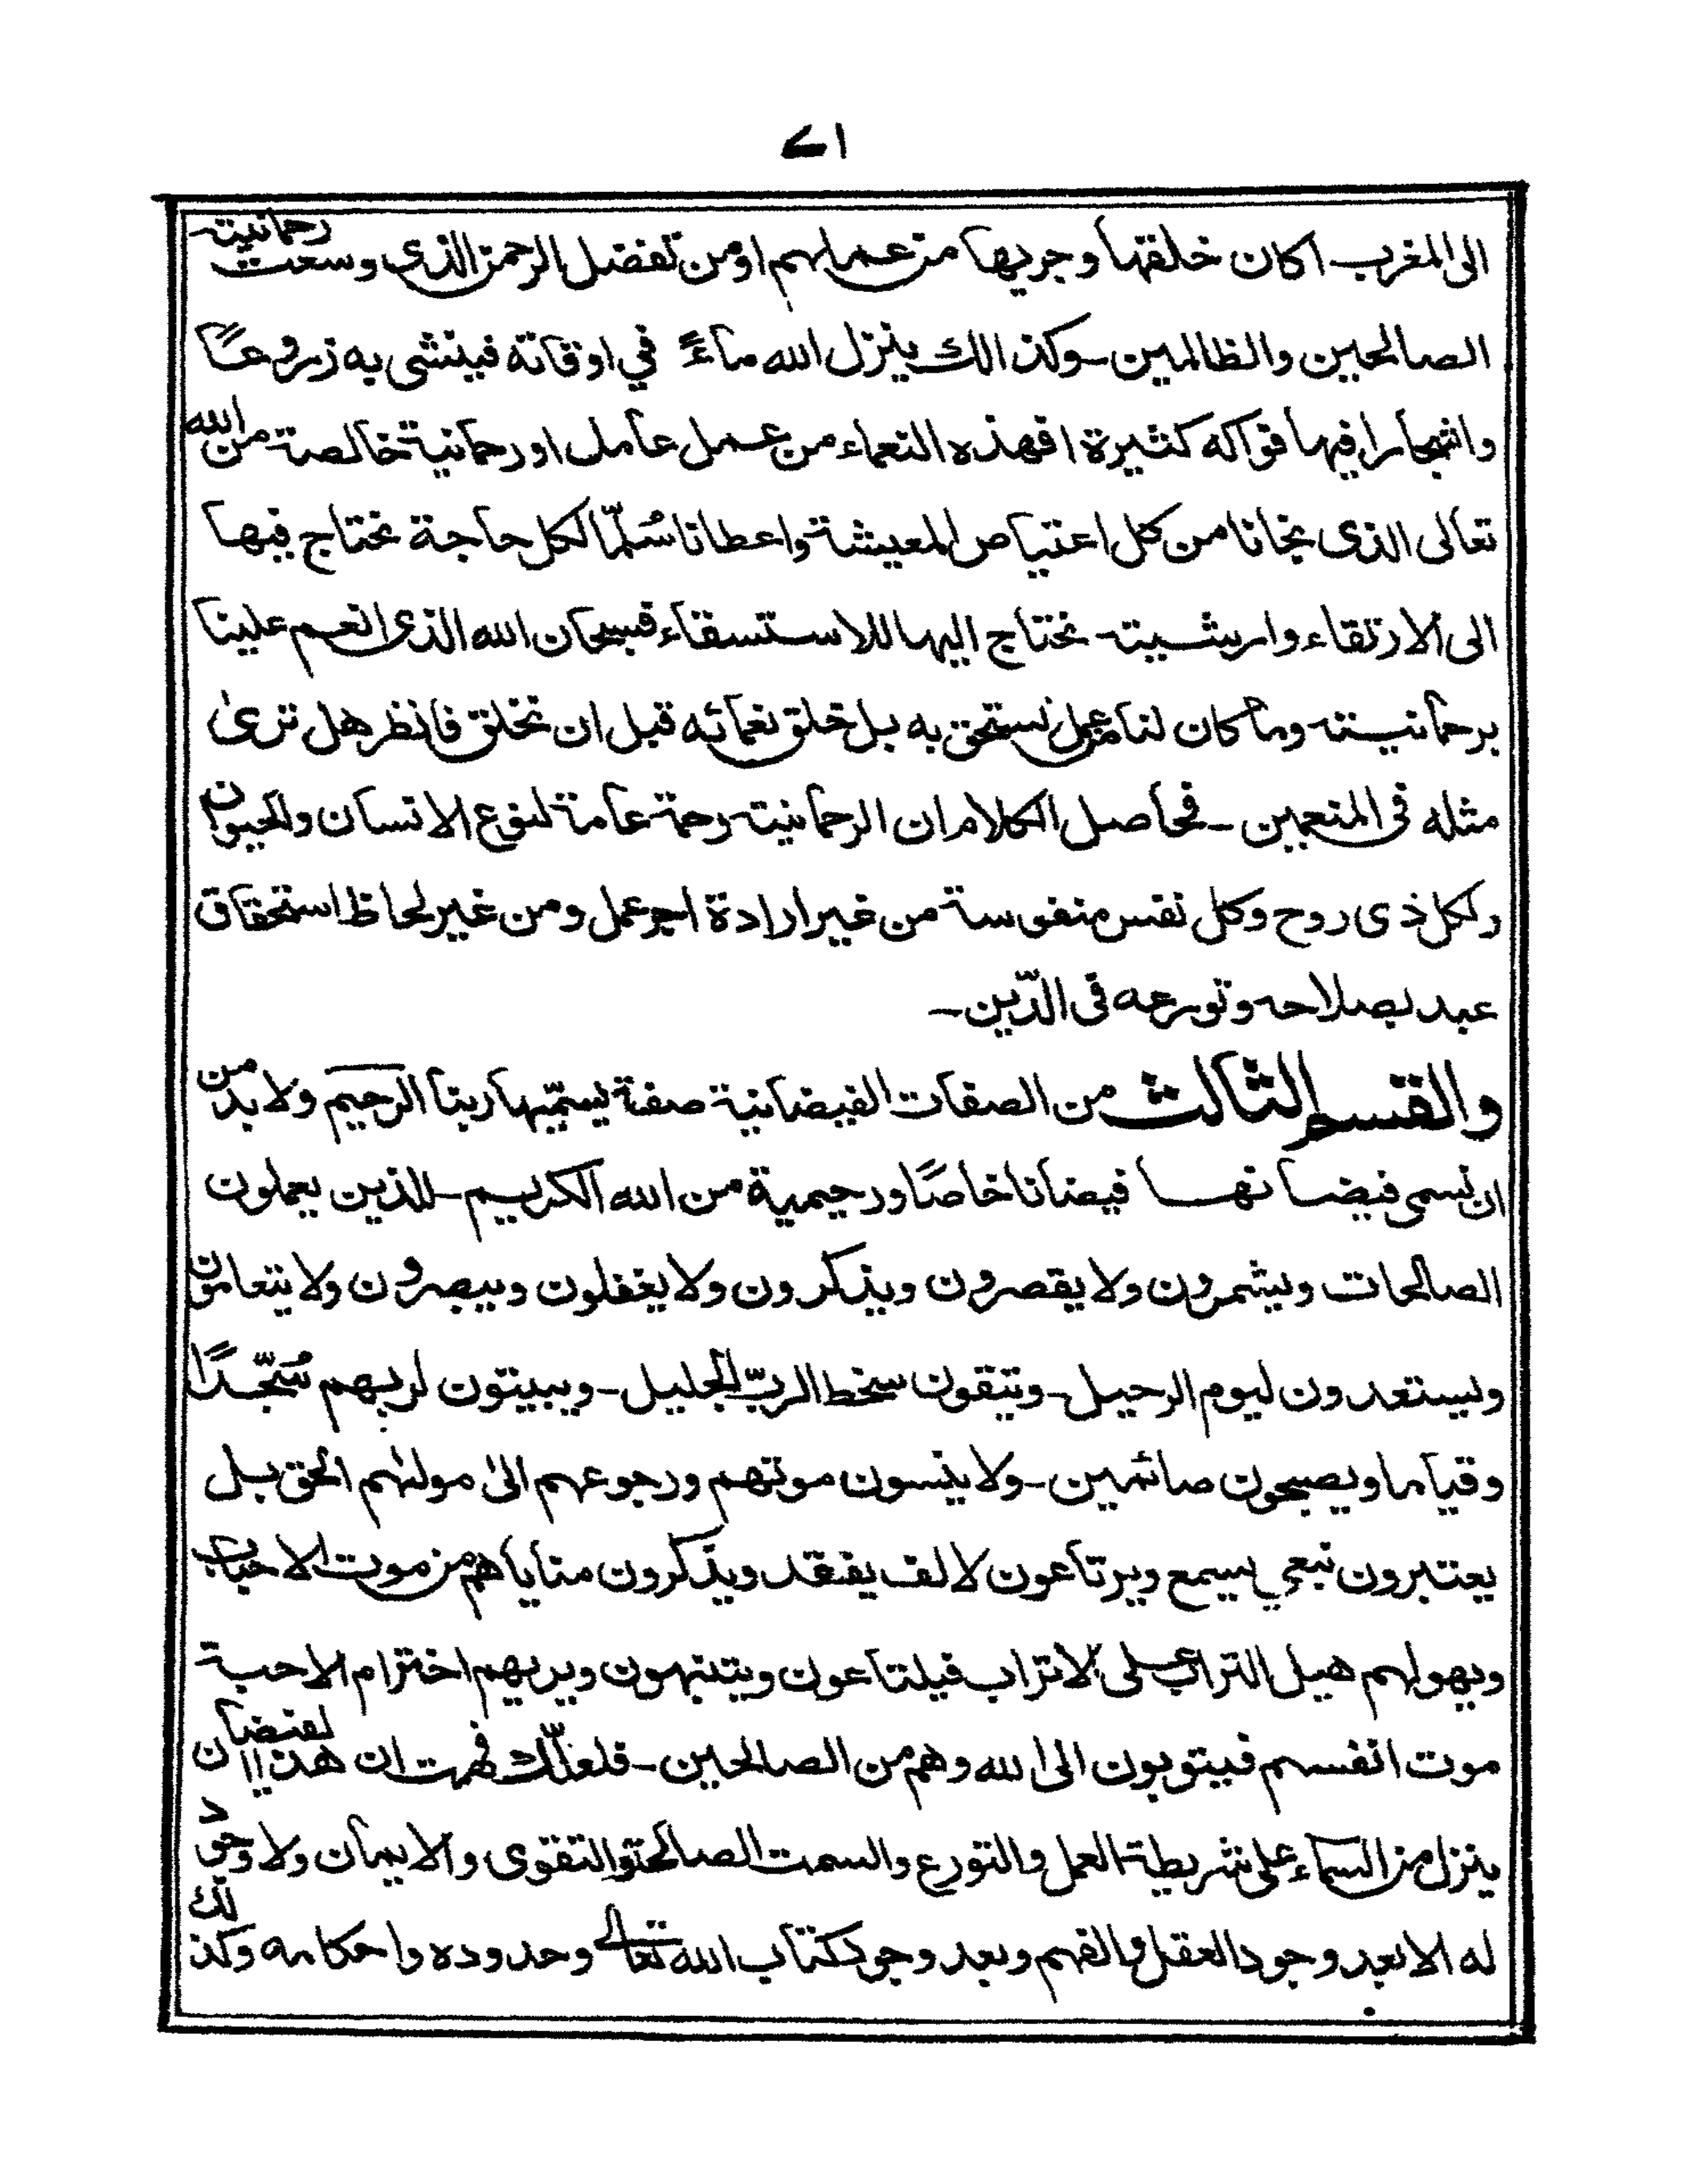 ۷۱
الى المغرب اكان خلقها وجريها من عملهم او من تفضل الرحمن الذى وسعت رحمانيته
الصالحين والظالمين ـ وكذالك ينزل الله ماءً في اوقاته فينشى به زروعًا
واشجارا فيها فواكه كثيرة افهذه النعماء من عمل عامل او رحمانية خالصة من الله
تعالى الذى نجانا من كل اعتياص المعيشة واعطانا سُلّما لكل حاجة نحتاج فيها
الى الارتقاء وارشية نحتاج اليها للاستسقاء فسبحان الله الذى انعم علينا
برحمانيته وما كان لنا من عمل نستحق به بل خلق نعمائه قبل ان نخلق فانظر هل ترىٰ
مثله فى المنعمين ـ فحاصل الكلام ان الرحمانية رحمة عامة لنوع الانسان والحيوان
ولكل ذى روح وكل نفس منفوسة من غير ارادة اجر عمل ومن غير لحاظ استحقاق
عبد بصلاحه وتورعه فى الدّين ـ
والقسم الثالث من الصفات الفيضانية صفة يسمّيها ربنا الرحيم ولا بد من
ان نسمى فيضانها فيضانا خاصًا ورحيمية من الله الكريم ـ للذين يعملون
الصالحات ويشمرون ولا يقصرون ويذكرون ولا يغفلون ويبصرون ولا يتعامون
ويستعدون ليوم الرحيل ـ ويتقون سخط الربّ الجليل ـ ويبيتون لربهم سُجّدًا
وقياما ويصبحون صائمين ـ ولا ينسون موتهم ورجوعهم الىٰ مولٰهم الحق بل
يعتبرون بنعي يسمع ويرتاعون لالف يفقد ويذكرون مناياهم من موت الاحباب
ويهولهم هيل التراب على الاتراب فيلتاعون ويتنبهون ويريهم اخترام الاحبة
موت انفسهم فيتوبون الى الله وهم من الصالحين ـ فلعلّك فهمت ان هذا الفيضان
ينزل من السماء على شريطة العمل والتورع والسمت الصالحة والتقوى والايمان ولا وجود
له الا بعد وجود العقل والفهم وبعد وجود كتاب الله تعالى وحدوده واحكامه وكذلك